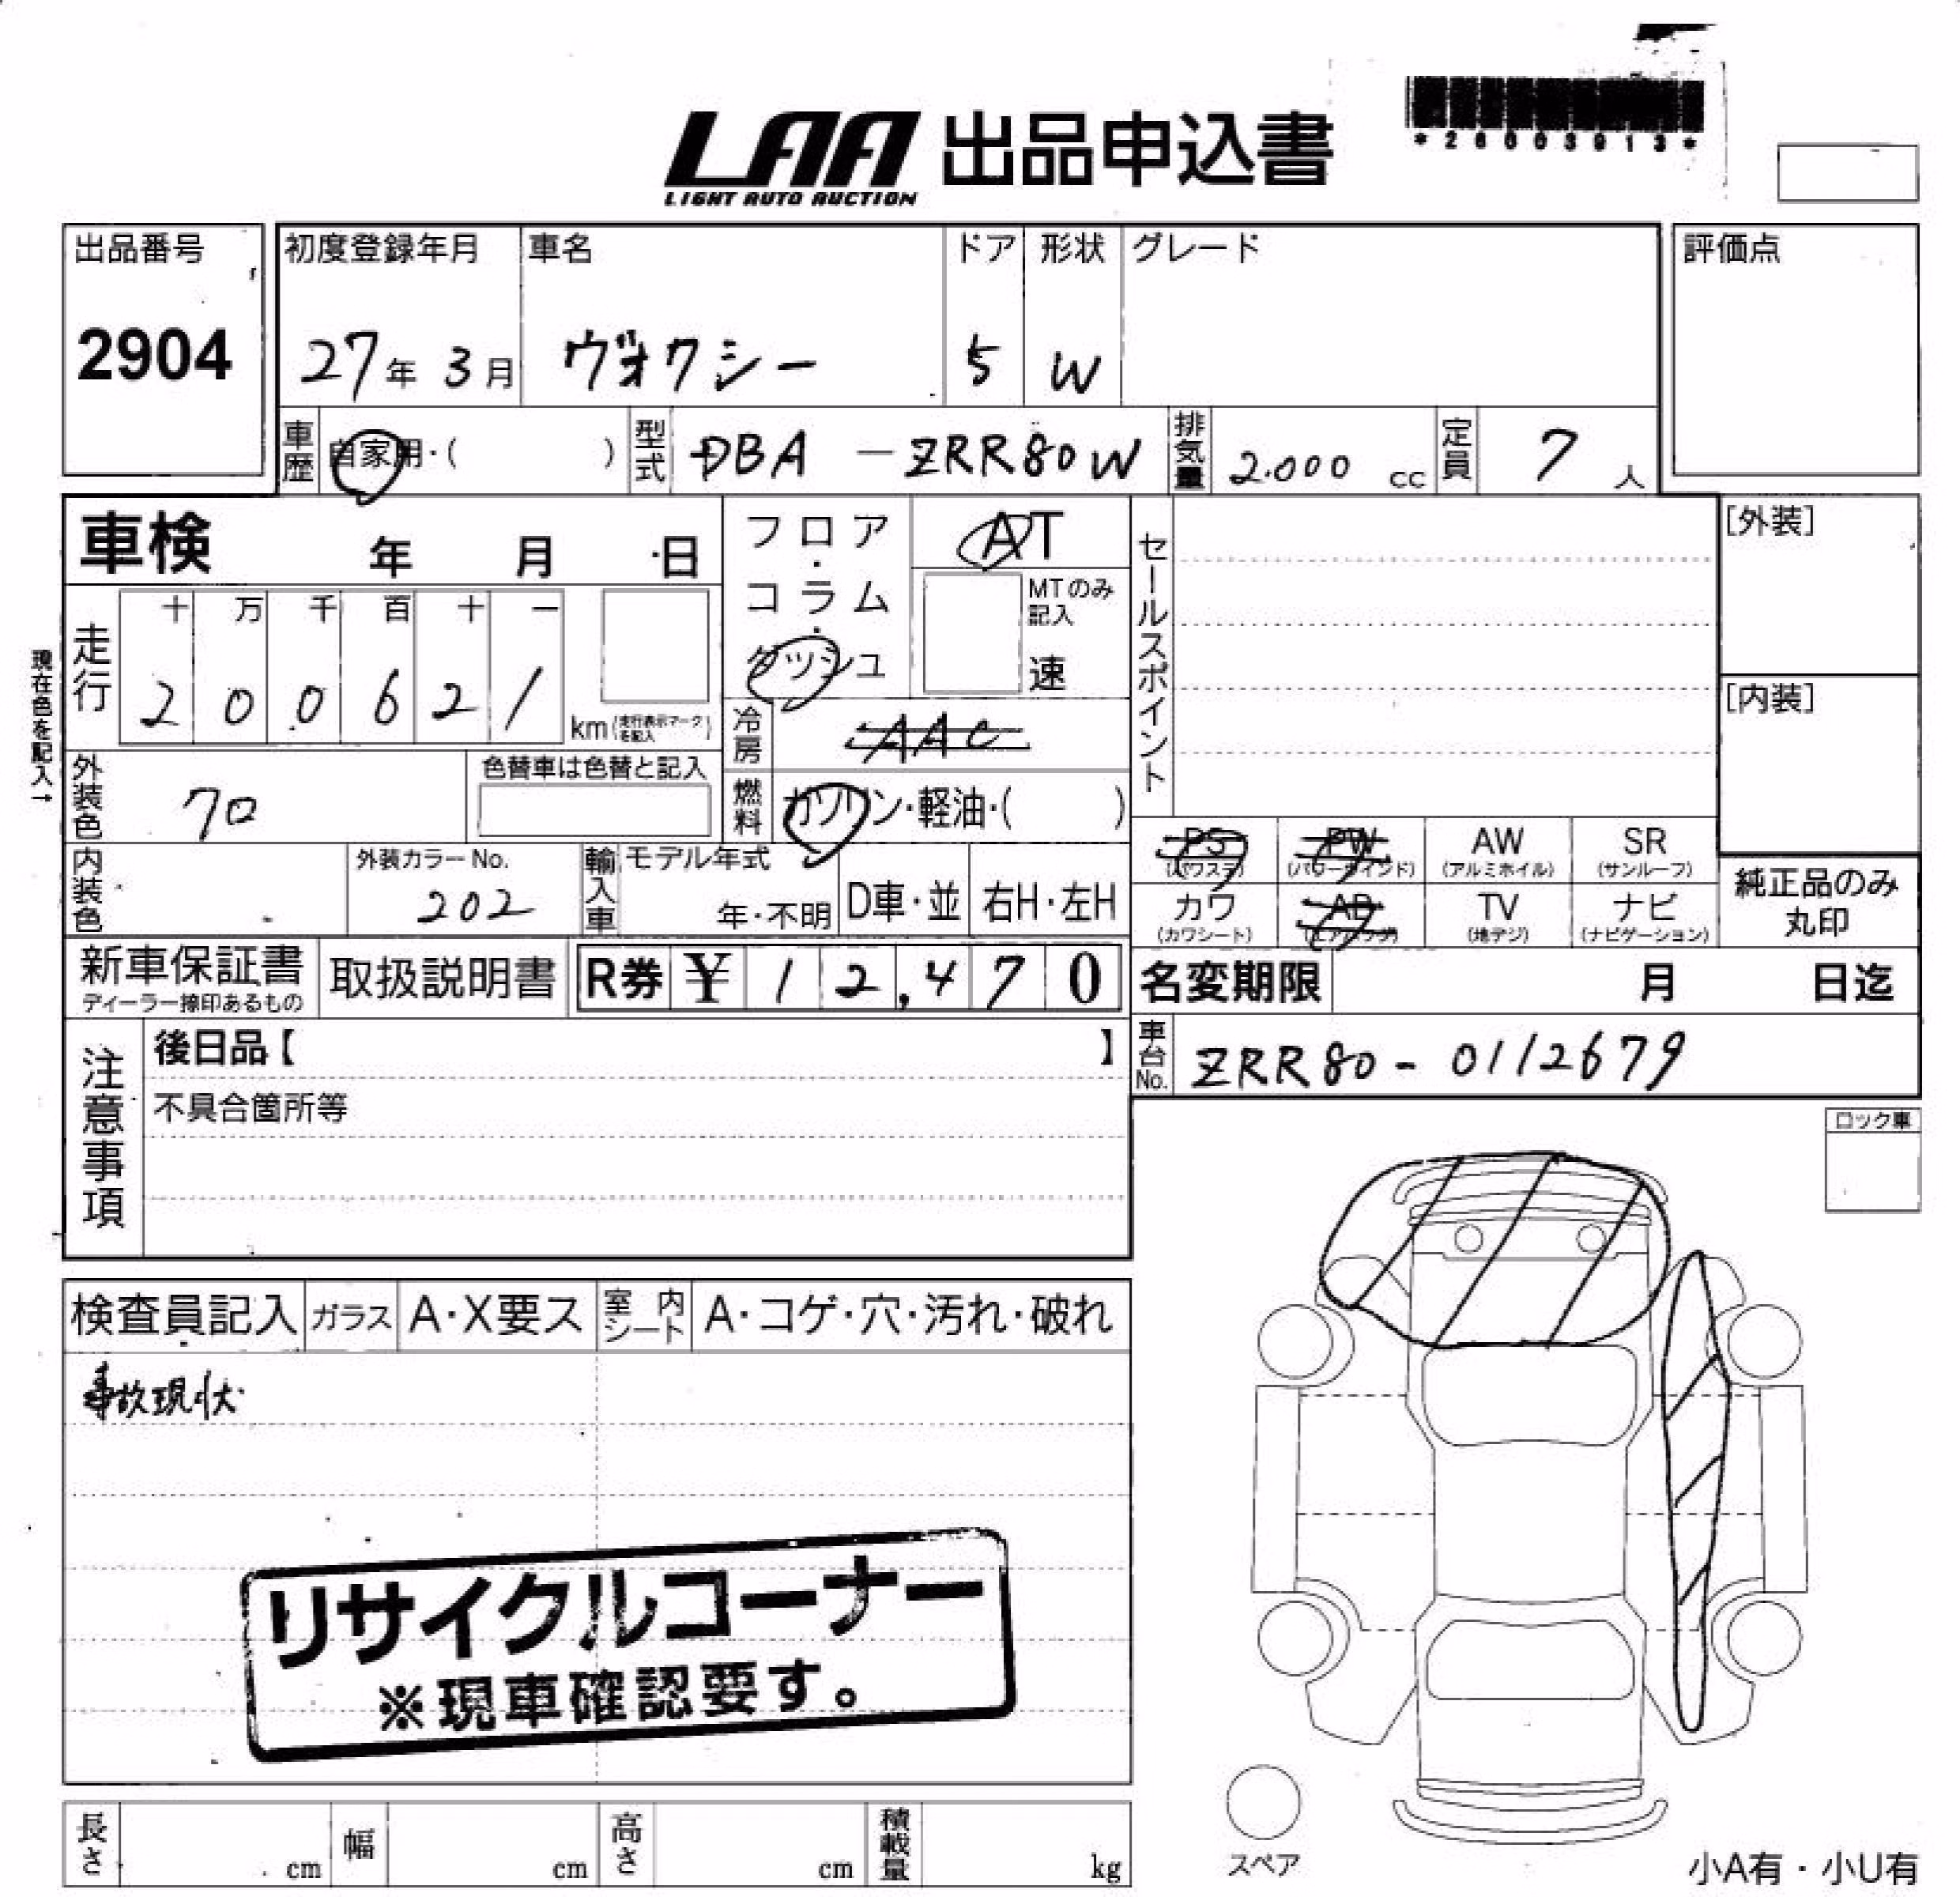 LAA 出品申込書
LIGHT AUTO AUCTION
*26003913*
出品番号 初度登録年月 車名 ドア 形状 グレード 評価点
2904 27年 3月 ヴォクシー 5 W
車歴 自家用・( ) 型式 DBA -ZRR80W 排気量 2.000 cc 定員 7 人
車検 年 月 日 フロア・コラム・ダッシュ AT セールスポイント [外装]
MTのみ記入 速
現在色を記入→
走行 十 万 千 百 十 一
2 0 0 6 2 1 km (走行表示マークを記入) [内装]
冷房 AAC
外装色 70 色替車は色替と記入 燃料 ガソリン・軽油・( )
PS (パワステ) PW (パワーウインド) AW (アルミホイル) SR (サンルーフ)
内装色 外装カラーNo. 202 輸入車 モデル年式 年・不明 D車・並 右H・左H
カワ (カワシート) AB (エアバッグ) TV (地デジ) ナビ (ナビゲーション) 純正品のみ丸印
新車保証書 ディーラー捺印あるもの 取扱説明書 R券 ¥ 12,470 名変期限 月 日迄
注意事項 後日品【 】 車台No. ZRR80-0112679
不具合箇所等 ロック車
検査員記入 ガラス A・X要ス 室内シート A・コゲ・穴・汚れ・破れ
事故現状
リサイクルコーナー
※現車確認要す。
長さ cm 幅 cm 高さ cm 積載量 kg
スペア 小A有・小U有